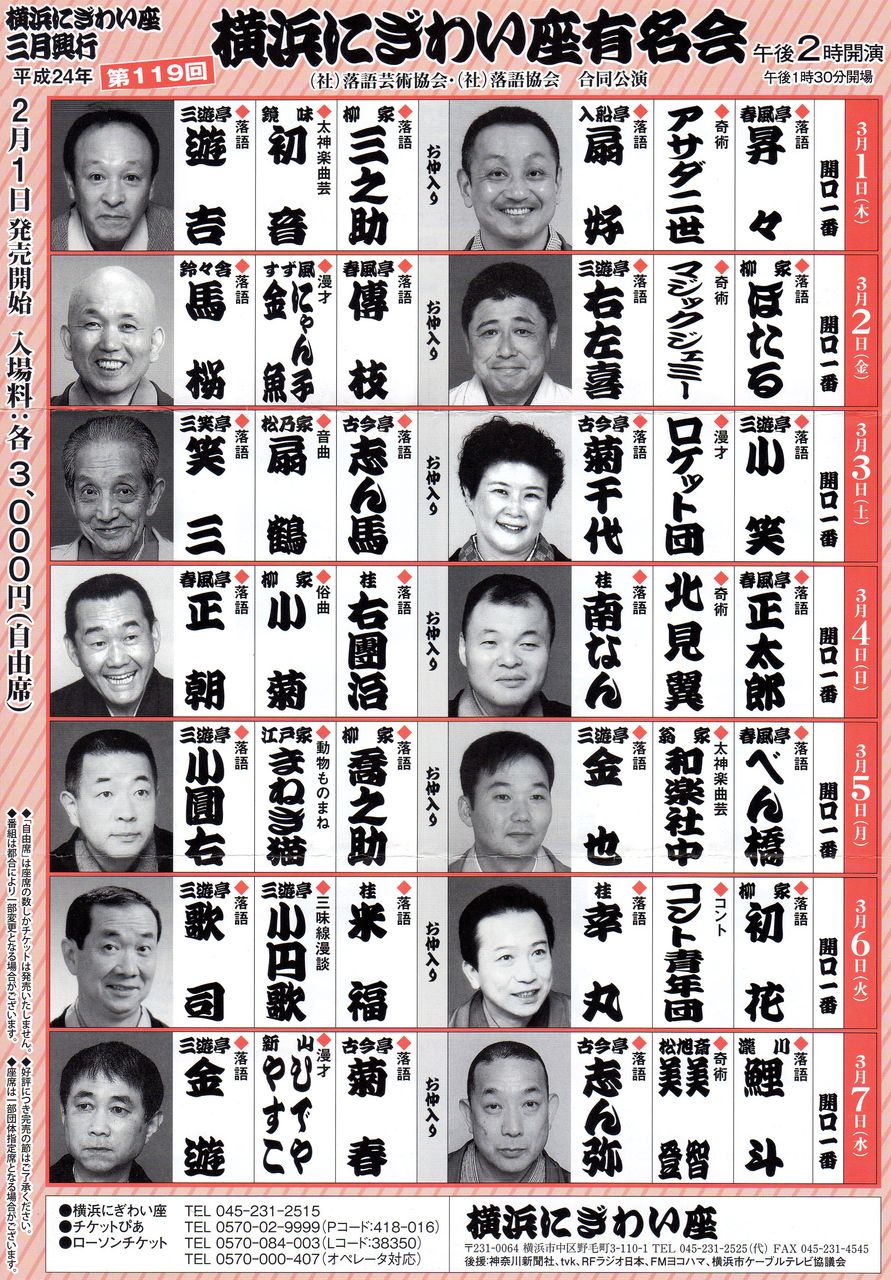 横浜にぎわい座
三月興行
平成24年
第119回
横浜にぎわい座有名会
午後2時開演
午後1時30分開場
(社)落語芸術協会・(社)落語協会 合同公演
2月1日発売開始 入場料:各3,000円(自由席)
3月1日(木)
開口一番
◆落語 春風亭 昇々
◆奇術 アサダ二世
◆落語 入船亭 扇好
お仲入り
◆落語 柳家 三之助
◆太神楽曲芸 鏡味 初音
◆落語 三遊亭 遊吉
3月2日(金)
開口一番
◆落語 柳家 ほたる
◆奇術 マジックジェミー
◆落語 三遊亭 右左喜
お仲入り
◆落語 春風亭 傳枝
◆漫才 すず風 にゃん子 金魚
◆落語 鈴々舎 馬桜
3月3日(土)
開口一番
◆落語 三遊亭 小笑
◆漫才 ロケット団
◆落語 古今亭 菊千代
お仲入り
◆落語 古今亭 志ん馬
◆音曲 松乃家 扇鶴
◆落語 三笑亭 笑三
3月4日(日)
開口一番
◆落語 春風亭 正太郎
◆奇術 北見翼
◆落語 桂 南なん
お仲入り
◆落語 桂 右團治
◆俗曲 柳家 小菊
◆落語 春風亭 正朝
3月5日(月)
開口一番
◆落語 春風亭 べん橋
◆太神楽曲芸 翁家 和楽社中
◆落語 三遊亭 金也
お仲入り
◆落語 柳家 喬之助
◆動物ものまね 江戸家 まねき猫
◆落語 三遊亭 小圓右
3月6日(火)
開口一番
◆落語 柳家 初花
◆コント コント青年団
◆落語 桂 幸丸
お仲入り
◆落語 桂 米福
◆三味線漫談 三遊亭 小円歌
◆落語 三遊亭 歌司
3月7日(水)
開口一番
◆落語 瀧川 鯉斗
◆奇術 松旭斎 美智 美登
◆落語 古今亭 志ん弥
お仲入り
◆落語 古今亭 菊春
◆漫才 新山 ひでや やすこ
◆落語 三遊亭 金遊
◆「自由席」は座席の数しかチケットは発売いたしません。
◆番組は都合により一部変更となる場合がございます。
◆好評につき完売の節はご了承ください。
◆座席は一部団体指定席となる場合がございます。
●横浜にぎわい座 TEL 045-231-2515
●チケットぴあ TEL 0570-02-9999(Pコード:418-016)
●ローソンチケット TEL 0570-084-003(Lコード:38350)
TEL 0570-000-407(オペレータ対応)
横浜にぎわい座
〒231-0064 横浜市中区野毛町3-110-1 TEL 045-231-2525(代) FAX 045-231-4545
後援:神奈川新聞社、tvk、RFラジオ日本、FMヨコハマ、横浜市ケーブルテレビ協議会